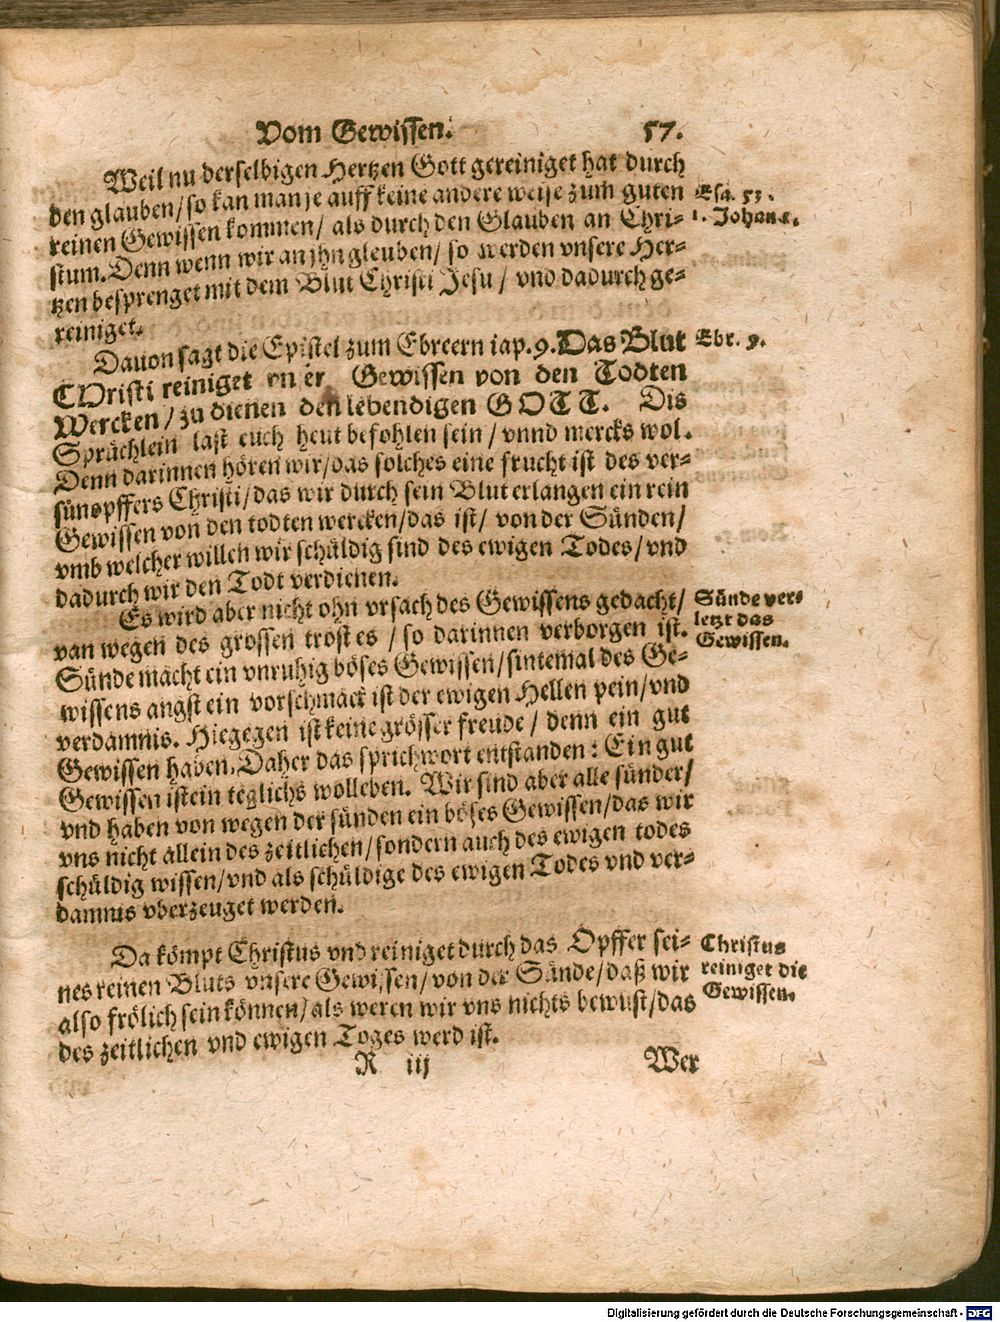 Vom Gewissen. 57.
Weil nu derselbigen Hertzen Gott gereiniget hat durch
den glauben/ so kan man je auff keine andere weise zum guten
Esa. 53.
reinen Gewissen kommen/ als durch den Glauben an Chri-
1. Johan 1.
stum. Denn wenn wir an jhn gleuben/ so werden vnsere Her-
tzen besprenget mit dem Blut Christi Jesu/ vnd dadurch ge-
reiniget.
Dauon sagt die Epistel zum Ebreern cap. 9. Das Blut
Ebr. 9.
CHristi reiniget Gewissen von den Todten
Wercken/ zu dienen den lebendigen GOTT. Dis
Sprüchlein last euch heut befohlen sein/ vnnd mercks wol.
Denn darinnen hören wir/ das solches eine frucht ist des ver-
sünopffers Christi/ das wir durch sein Blut erlangen ein rein
Gewissen von den todten wercken/ das ist/ von der Sünden/
vmb welcher willen wir schüldig sind des ewigen Todes/ vnd
dadurch wir den Todt verdienen.
Es wird aber nicht ohn vrsach des Gewissens gedacht/
Sünde ver-
van wegen des grossen trostes/ so darinnen verborgen ist.
letzt das
Sünde macht ein vnruhig böses Gewissen/ sintemal des Ge-
Gewissen.
wissens angst ein vorschmack ist der ewigen Hellen pein/ vnd
verdamnis. Hiegegen ist keine grösser freude/ denn ein gut
Gewissen haben. Daher das sprichwort entstanden: Ein gut
Gewissen ist ein teglichs wolleben. Wir sind aber alle sünder/
vnd haben von wegen der sünden ein böses Gewissen/ das wir
vns nicht allein des zeitlichen/ sondern auch des ewigen todes
schüldig wissen/ vnd als schüldige des ewigen Todes vnd ver-
damnis vberzeuget werden.
Da kömpt Christus vnd reiniget durch das Opffer sei-
Christus
nes reinen Bluts vnsere Gewissen/ von der Sünde/ daß wir
reiniget die
also frölich sein können/ als weren wir vns nichts bewust/ das
Gewissen.
des zeitlichen vnd ewigen Toges werd ist.
R iij Wer
Digitalisierung gefördert durch die Deutsche Forschungsgemeinschaft - DFG